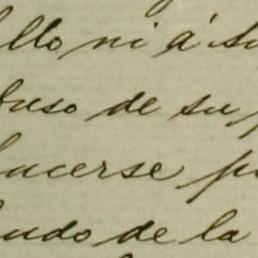 llo ni á su
buso de su p
lucerse p
ludo de la